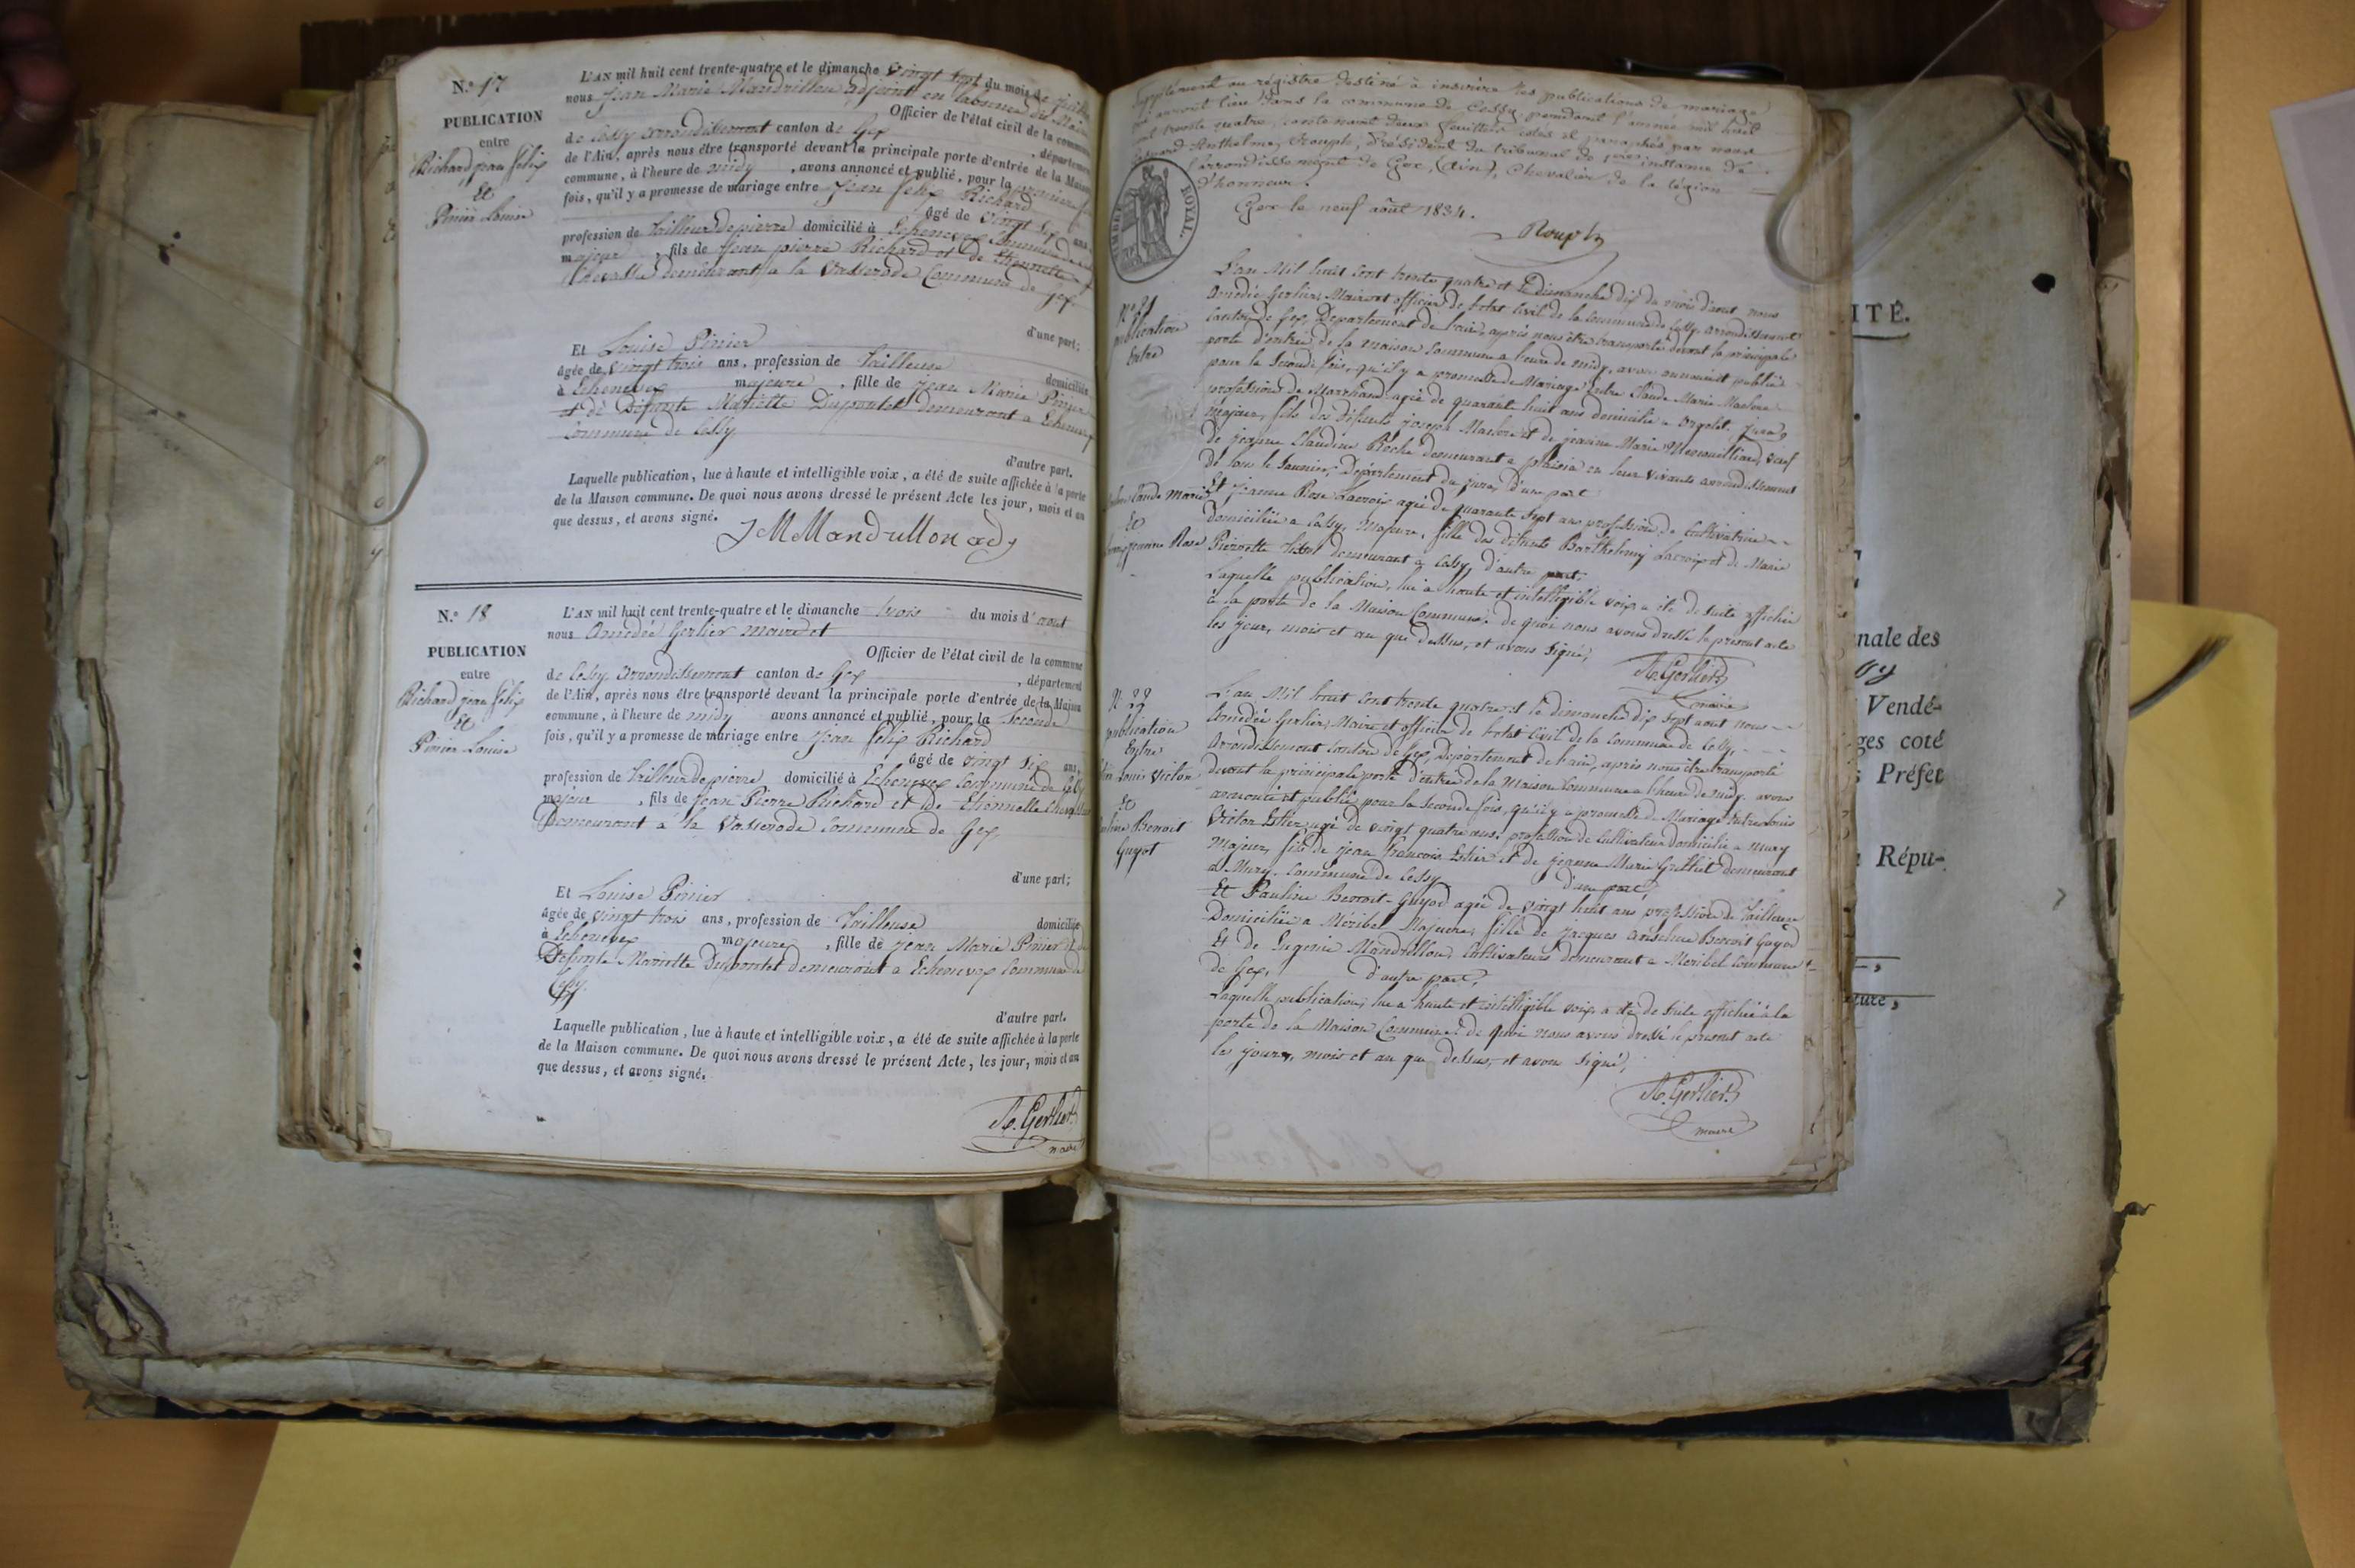 N.° 17
PUBLICATION
entre
Richard jean felix
Et
Pinier Louise
L'AN mil huit cent trente-quatre et le dimanche vingt sept du mois de juillet
nous Jean Marie Mandrillon adjoint en l'absence du Maire
Officier de l'état civil de la commune
de Cessy arrondissement canton de Gex , département
de l'Ain, après nous être transporté devant la principale porte d'entrée de la Maison
commune, à l'heure de midy , avons annoncé et publié, pour la première
fois, qu'il y a promesse de mariage entre Jean felix Richard
âgé de vingt six ans,
profession de tailleur de pierre domicilié à Echenevex Commune de
majeur , fils de Jean pierre Richard et de thonnette
Chevallu demeurant a la Vasserode Commune de gex
d'une part;
Et Louise Pinier
âgée de vingt trois ans, profession de tailleuse domiciliée
à Echenevex majeure , fille de jean Marie Pinier
et de Defunte Mariette Dupontet demeurant a Echenevex
Commune de Cessy
d'autre part.
Laquelle publication, lue à haute et intelligible voix, a été de suite affichée à la porte
de la Maison commune. De quoi nous avons dressé le présent Acte les jour, mois et an
que dessus, et avons signé.
J M Mandrillon adj
N.° 18
PUBLICATION
entre
Richard jean felix
Et
Pinier Louise
L'AN mil huit cent trente-quatre et le dimanche trois du mois d'aout
nous Amedée Gerlier maire et
Officier de l'état civil de la commune
de Cessy arrondissement canton de Gex , département
de l'Ain, après nous être transporté devant la principale porte d'entrée de la Maison
commune, à l'heure de midy avons annoncé et publié, pour la seconde
fois, qu'il y a promesse de mariage entre Jean felix Richard
âgé de vingt six ans,
profession de tailleur de pierre domicilié à Echenevex Commune de Cessy
majeur , fils de jean Pierre Richard et de thonnette
Demeurant a la Vasserode Commune de Gex
d'une part;
Et Louise Pinier
âgée de vingt trois ans, profession de tailleuse domiciliée
à Echenevex majeure , fille de jean Marie Pinier et de
Defunte Mariette Dupontet demeurant a Echenevex Commune de
Cessy.
d'autre part.
Laquelle publication, lue à haute et intelligible voix, a été de suite affichée à la porte
de la Maison commune. De quoi nous avons dressé le présent Acte, les jour, mois et an
que dessus, et avons signé.
A. Gerlier
maire
Supplément au régistre destiné à inscrire les publications de mariage
qui auront lieu dans la commune de Cessy pendant l'année mil huit
cent trente quatre, contenant deux feuillets cotés et paraphés par nous
Anthelme Rouph, Président du tribunal de 1ere instance de
l'arrondissement de Gex, (Ain), Chevalier de la légion
d'honneur.
Gex le neuf août 1834.
Rouph
TIMBRE ROYAL.
N° 21
publication
Entre
Claude Marie
Et
Lacroix jeanne Rose
L'an Mil huit cent trente quatre et le dimanche dix du mois d'aout, nous
Amedée Gerlier, Maire et officier de l'etat Civil de la Commune de Cessy, arrondissement
Canton de Gex, Departement de l'ain, après nous être transporté devant la principale
porte d'entrée de la maison commune a heure de midy, avons annoncé et publié
pour la seconde fois, qu'il y a promesse de Mariage entre Claude Marie
profession de Marchand agé de quarante huit ans domicilié a Orgelet, jura,
majeur, fils des defunts joseph et de jeanne Marie veuf
de jeanne Claudine Roche demeurant a plaisia en leur vivant arrondissement
de Lons le Saunier, Departement du jura, d'une part
Et jeanne Rose Lacroix agée de quarante sept ans profession de Cultivatrice
Domiciliée a Cessy, Majeure, fille des defunts Barthelemy Lacroix et de Marie
Pierrette demeurant a Cessy, d'autre part.
Laquelle publication, lue a haute et intelligible voix a été de suite affichée
à la porte de la Maison Commune: de quoi nous avons dressé le present acte
les jour, mois et an que dessus, et avons signé,
A. Gerlier
maire
N° 22
publication
Entre
Louis Victor
Et
Pauline Benoit
Guyot
L'an Mil huit cent trente quatre et le dimanche dix sept aout nous
Amedée Gerlier, Maire et officier de l'etat Civil de la Commune de Cessy,
Arrondissement Canton de Gex, Département de l'ain, après nous être transporté
devant la principale porte d'entrée de la Maison Commune a l'heure de midy, avons
annoncé et publié pour la seconde fois, qu'il y a promesse de Mariage entre Louis
Victor agé de vingt quatre ans, profession de Cultivateur domicilié a Mury
Majeur, fils de jean francois et de jeanne Marie demeurant
a Mury, Commune de Cessy d'une part,
Et Pauline Benoit-Guyod agée de vingt huit ans profession de tailleuse
Domiciliée a Méribel Majeure, fille de Jacques Anselme Benoit Guyod
Et de Eugenie Mandrillon, Cultivateurs demeurant a Meribel Commune
de Gex, d'autre part,
Laquelle publication, lue a haute et intelligible voix a été de suite affichée à la
porte de la Maison Commune: de quoi nous avons dressé le present acte
les jour, mois et an que dessus, et avons signé,
A. Gerlier
maire
ITÉ.
nale des
Vendé-
ges coté
Préfet
Répu-